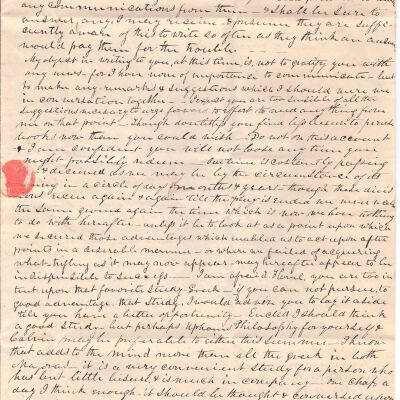 any communications from them — & shall be sure to
answer any I may receive & presume they are suffi-
ciently aware of this to write so often as they think an answer
would pay them for the trouble. —
My object in writing to you, at this time is, not to gratify you with
any news — for I have none of importance to communicate — but
to make any remarks & suggestions which I should were we
in conversation together — I expect you are too sensible of all the
suggestions necessary to urge forward to effort to need any thing from
me on that point — Though doubtless you find less leisure to peruse
books now than you could wish — Do not on this account
& I am confident you will not loose any time you
might possibly redeem. time is constantly passing
& deceived as we may be by the circumstance of its
in a circle of days months & years — though these divis
ions recur again & again till the play is ended we never
the same ground again the time which is now we have nothing
to do with hereafter — unless it be to look at as a point upon which
we secured those advantages which enabled us to act upon after
points in a desirable manner — or where we failed of acquiring
what trifling as it may now appear may hereafter appear to be
indispensible to success — I am afraid you are too in
tent upon that favorite study Greek — if you can not pursue to
good advantage that study, I would advise you to lay it aside
till you have a better opportunity — Euclid I should think
a good study but perhaps Upham Philosophy for yourself &
Calvin may be preferable to either this summer — I know
that adds to the mind more than all the greek in both
Majoras. it is a very convenient study for a person who
has but little leisure & is much in company — one chap. a
day I think enough. it should be thought & conversed upon